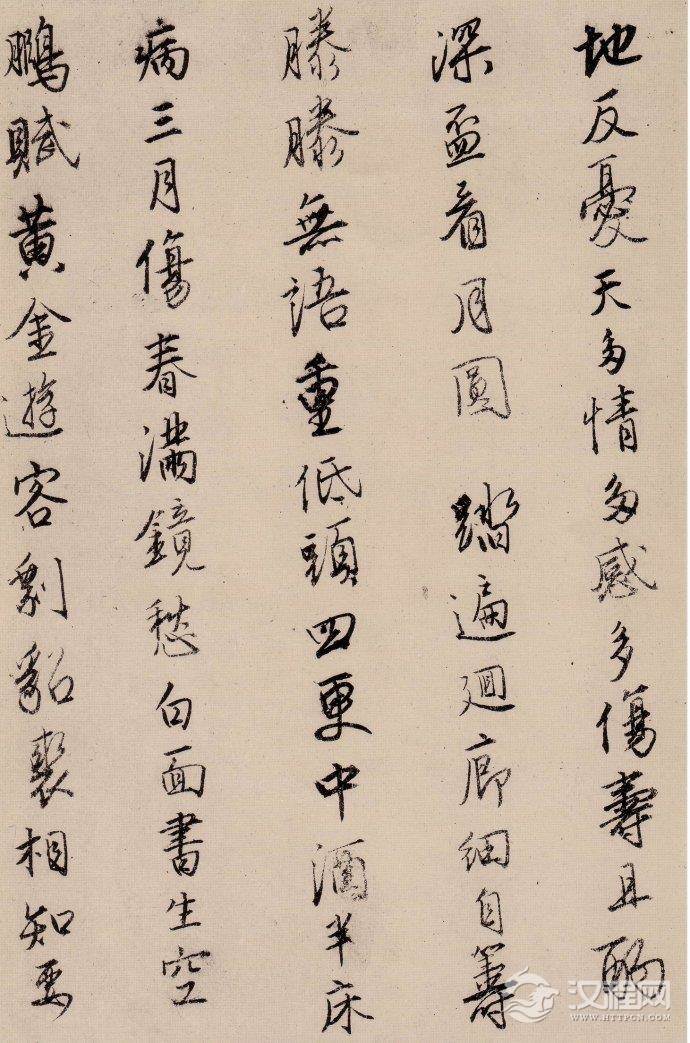 地反憂天多情多感多傷壽且酌
深盃看月圓 踏遍迴廊細自籌
滕滕無語重低頭四更中酒半床
病三月傷春滿鏡愁白面書生空
鵩賦黃金遊客剩貂裘相知要
汉程网
WWW.HTTPCN.COM